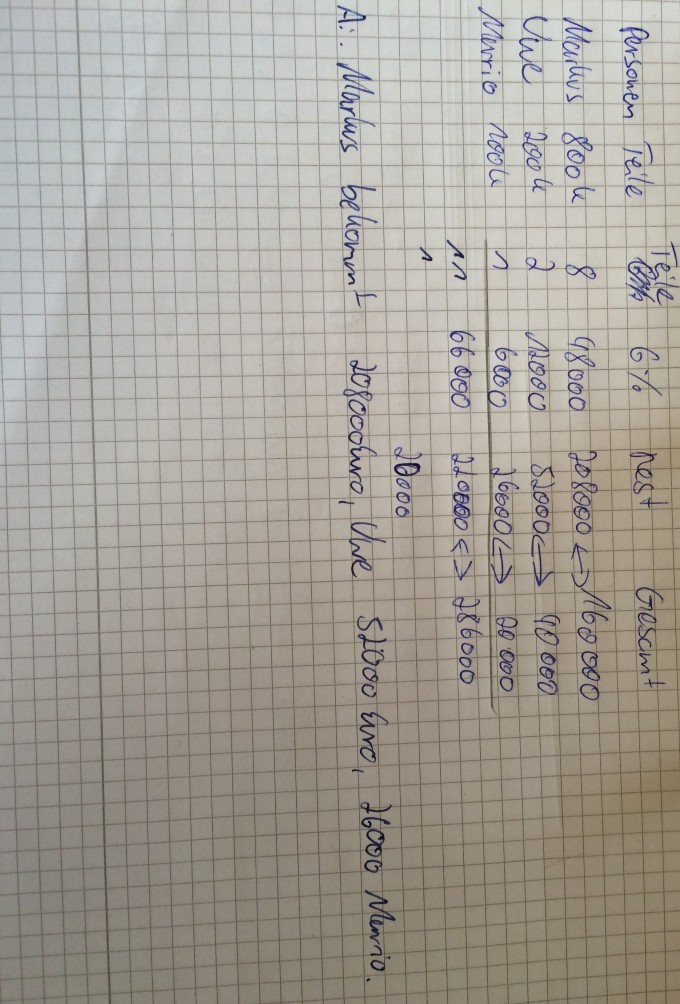 Personen Teile Teile 6% Rest Gesamt
Markus 800k 8 48000 208000 <-> 160 000
Uwe 200k 2 12000 52000 <-> 40 000
Mario 100k 1 6000 26000 <-> 20 000
11 66 000 220000 <-> 286000
1 20000
A:. Markus bekommt 208000 Euro, Uwe 52000 Euro, 26000 Mario.